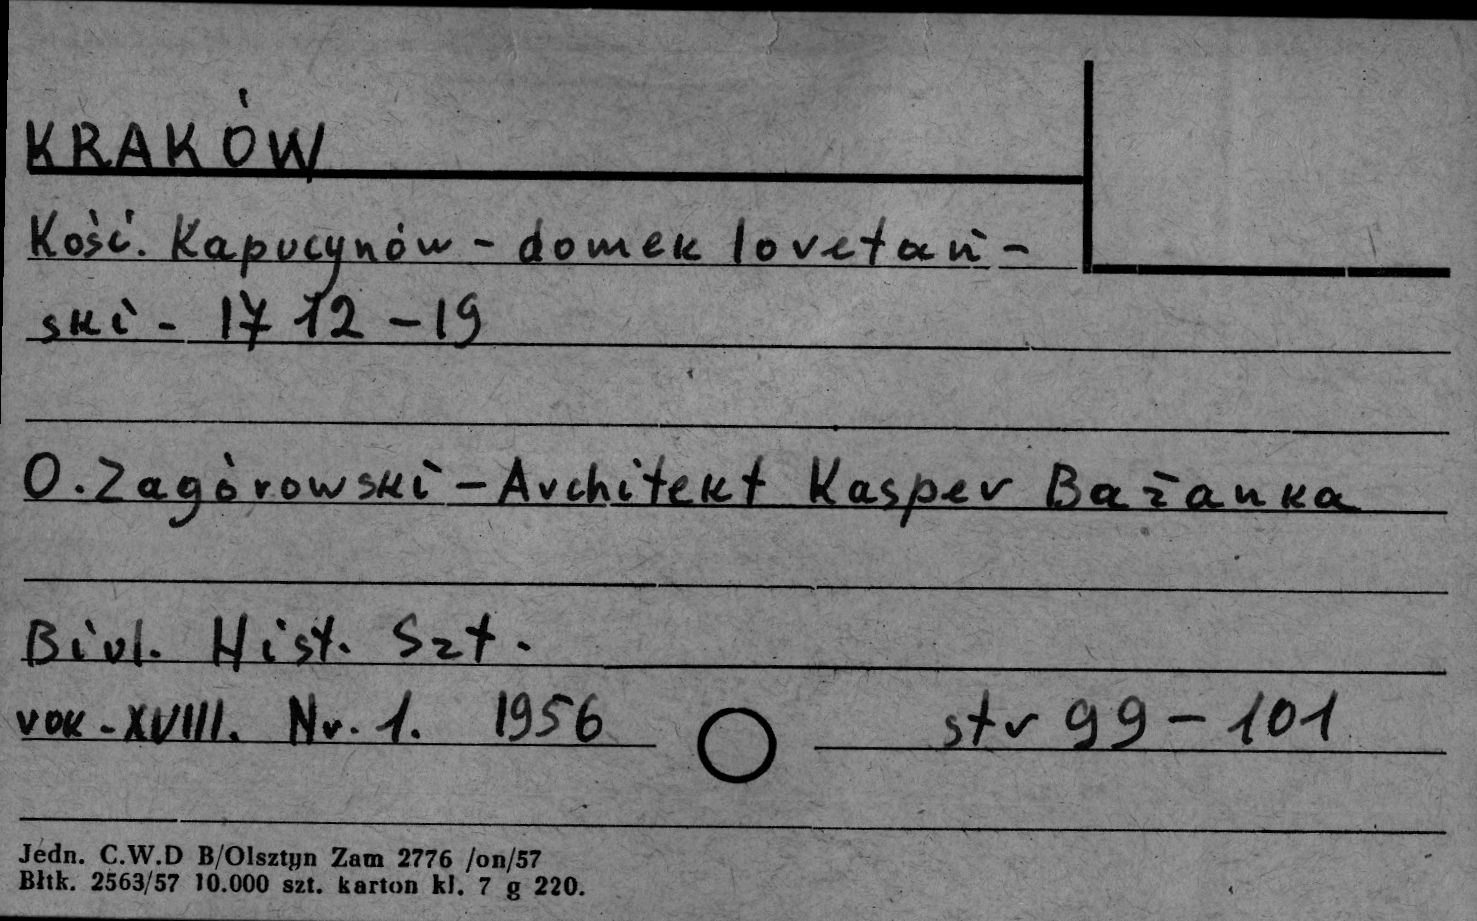 KRAKÓW
Kość. Kapucynów - domek loretań -
ski - 1712 - 19
O. Zagórowski - Architekt Kasper Bażanka
Biul. Hist. Szt.
rok - XVIII. Nr. 1. 1956 str 99 - 101
Jedn. C.W.D B/Olsztyn Zam 2776 /on/57
Błtk. 2563/57 10.000 szt. karton kl. 7 g 220.